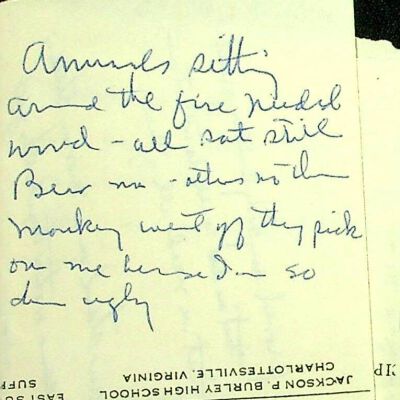 Animals sitting
around the fire needed
wood - all sat still
Bear no - others no then
Monkey went off they pick
on me because I'm so
damn ugly
JACKSON P. BURLEY HIGH SCHOOL
CHARLOTTESVILLE, VIRGINIA
EAST SU
SUFF